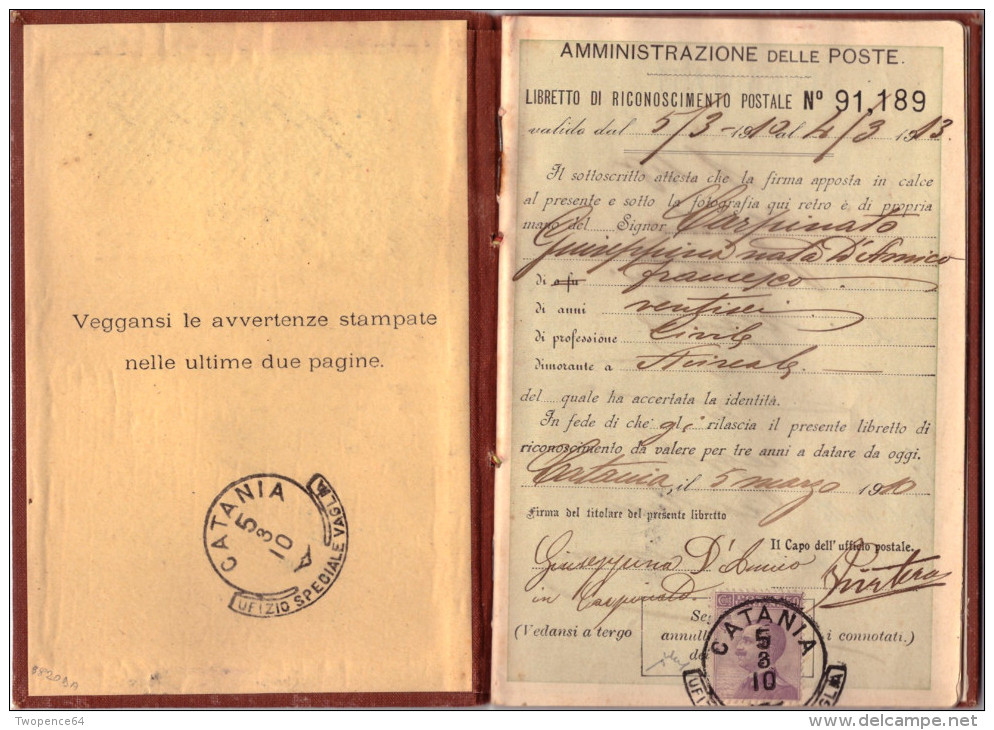 Veggansi le avvertenze stampate
nelle ultime due pagine.
CATANIA
5
3
10
A
UFIZIO SPECIALE VAGLIA
85208A
Twopence64
AMMINISTRAZIONE DELLE POSTE.
LIBRETTO DI RICONOSCIMENTO POSTALE Nº 91,189
valido dal 5/3-1910 al 4/3 1913.
Il sottoscritto attesta che la firma apposta in calce
al presente e sotto la fotografia qui retro è di propria
mano del Signor Carpinato
Giuseppina nata D'Amico
di o fu Francesco
di anni ventisei
di professione Civile
dimorante a Acireale
del quale ha accertata la identità.
In fede di che gli rilascia il presente libretto di
riconoscimento da valere per tre anni a datare da oggi.
Catania, il 5 marzo 1910
Firma del titolare del presente libretto
Il Capo dell'ufficio postale.
Giuseppina D'Amico
in Carpinato
(Vedansi a tergo i connotati.)
Se
annull
de
CATANIA
5
3
10
www.delcampe.net